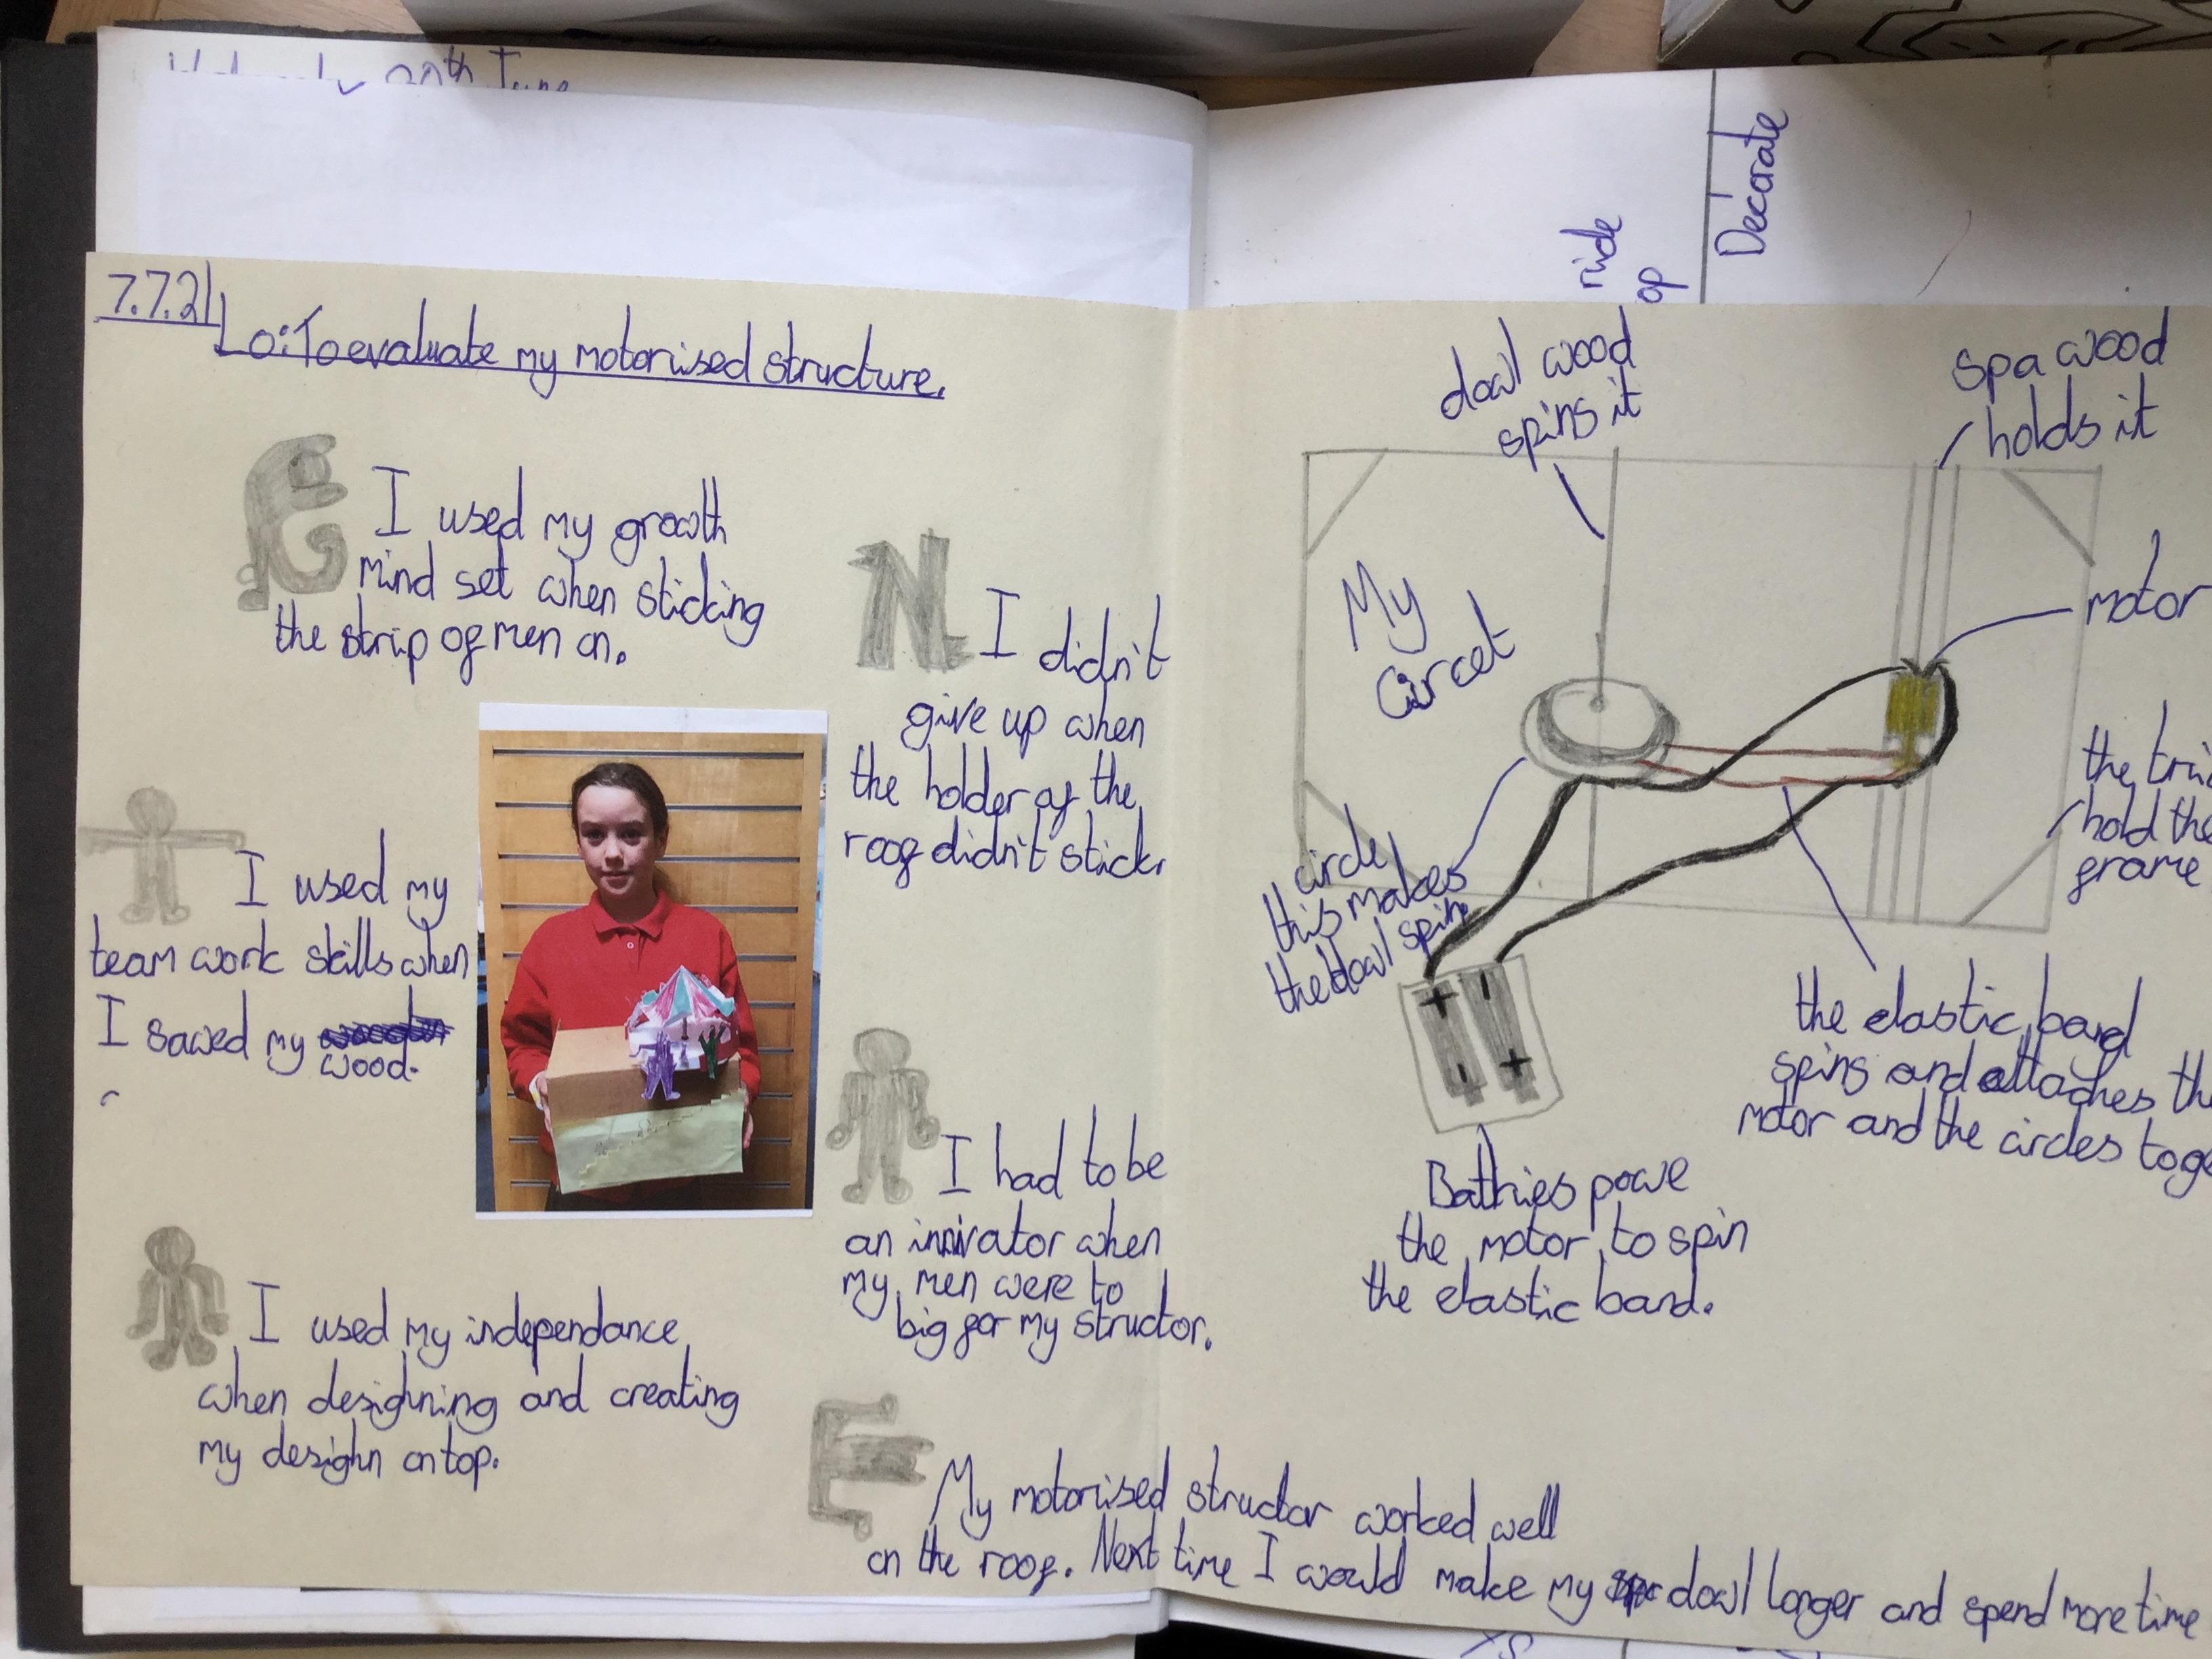 20th June
7.7.21
Lo: To evaluate my motorised structure.
G I used my growth
mind set when sticking
the strip of men on.
I used my
team work skills when
I sawed my
wood.
I used my independance
when designing and creating
my desighn on top.
N I didn't
give up when
the holder of the
roof didn't stick.
I had to be
an innivator when
my men were to
big for my structor.
E My motorised structor worked well
on the roof. Next time I would make my dowl longer and spend more time
Decorate
ride
op
dowl wood
spins it
spa wood
holds it
My
Circet
motor
the
hold the
frame
circle
this makes
the dowl spin
+ -
- +
the elastic band
spins and attaches the
motor and the circles toge
Battries powe
the motor to spin
the elastic band.